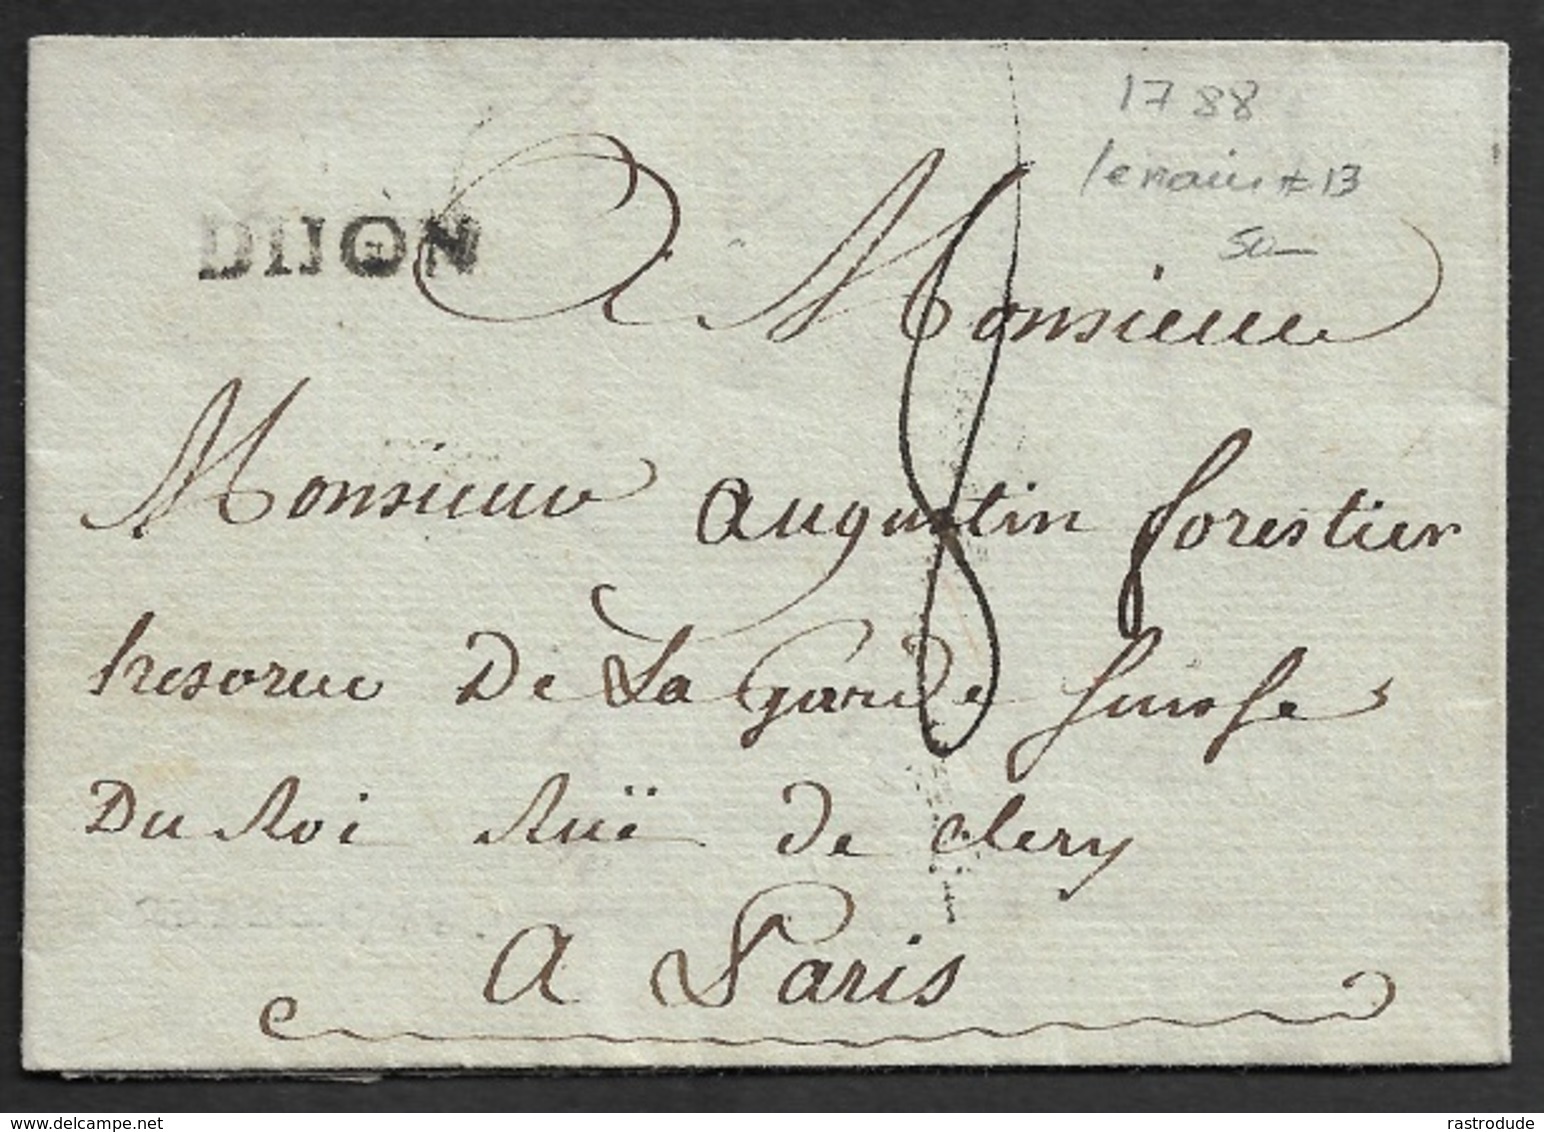 1788
Lenain #13
50—
DIJON
A Monsieur
8
Monsieur augustin forestier
tresorier De La garde suisse
Du Roi Ruë de clery
A Paris
rastrodude
delcampe.net